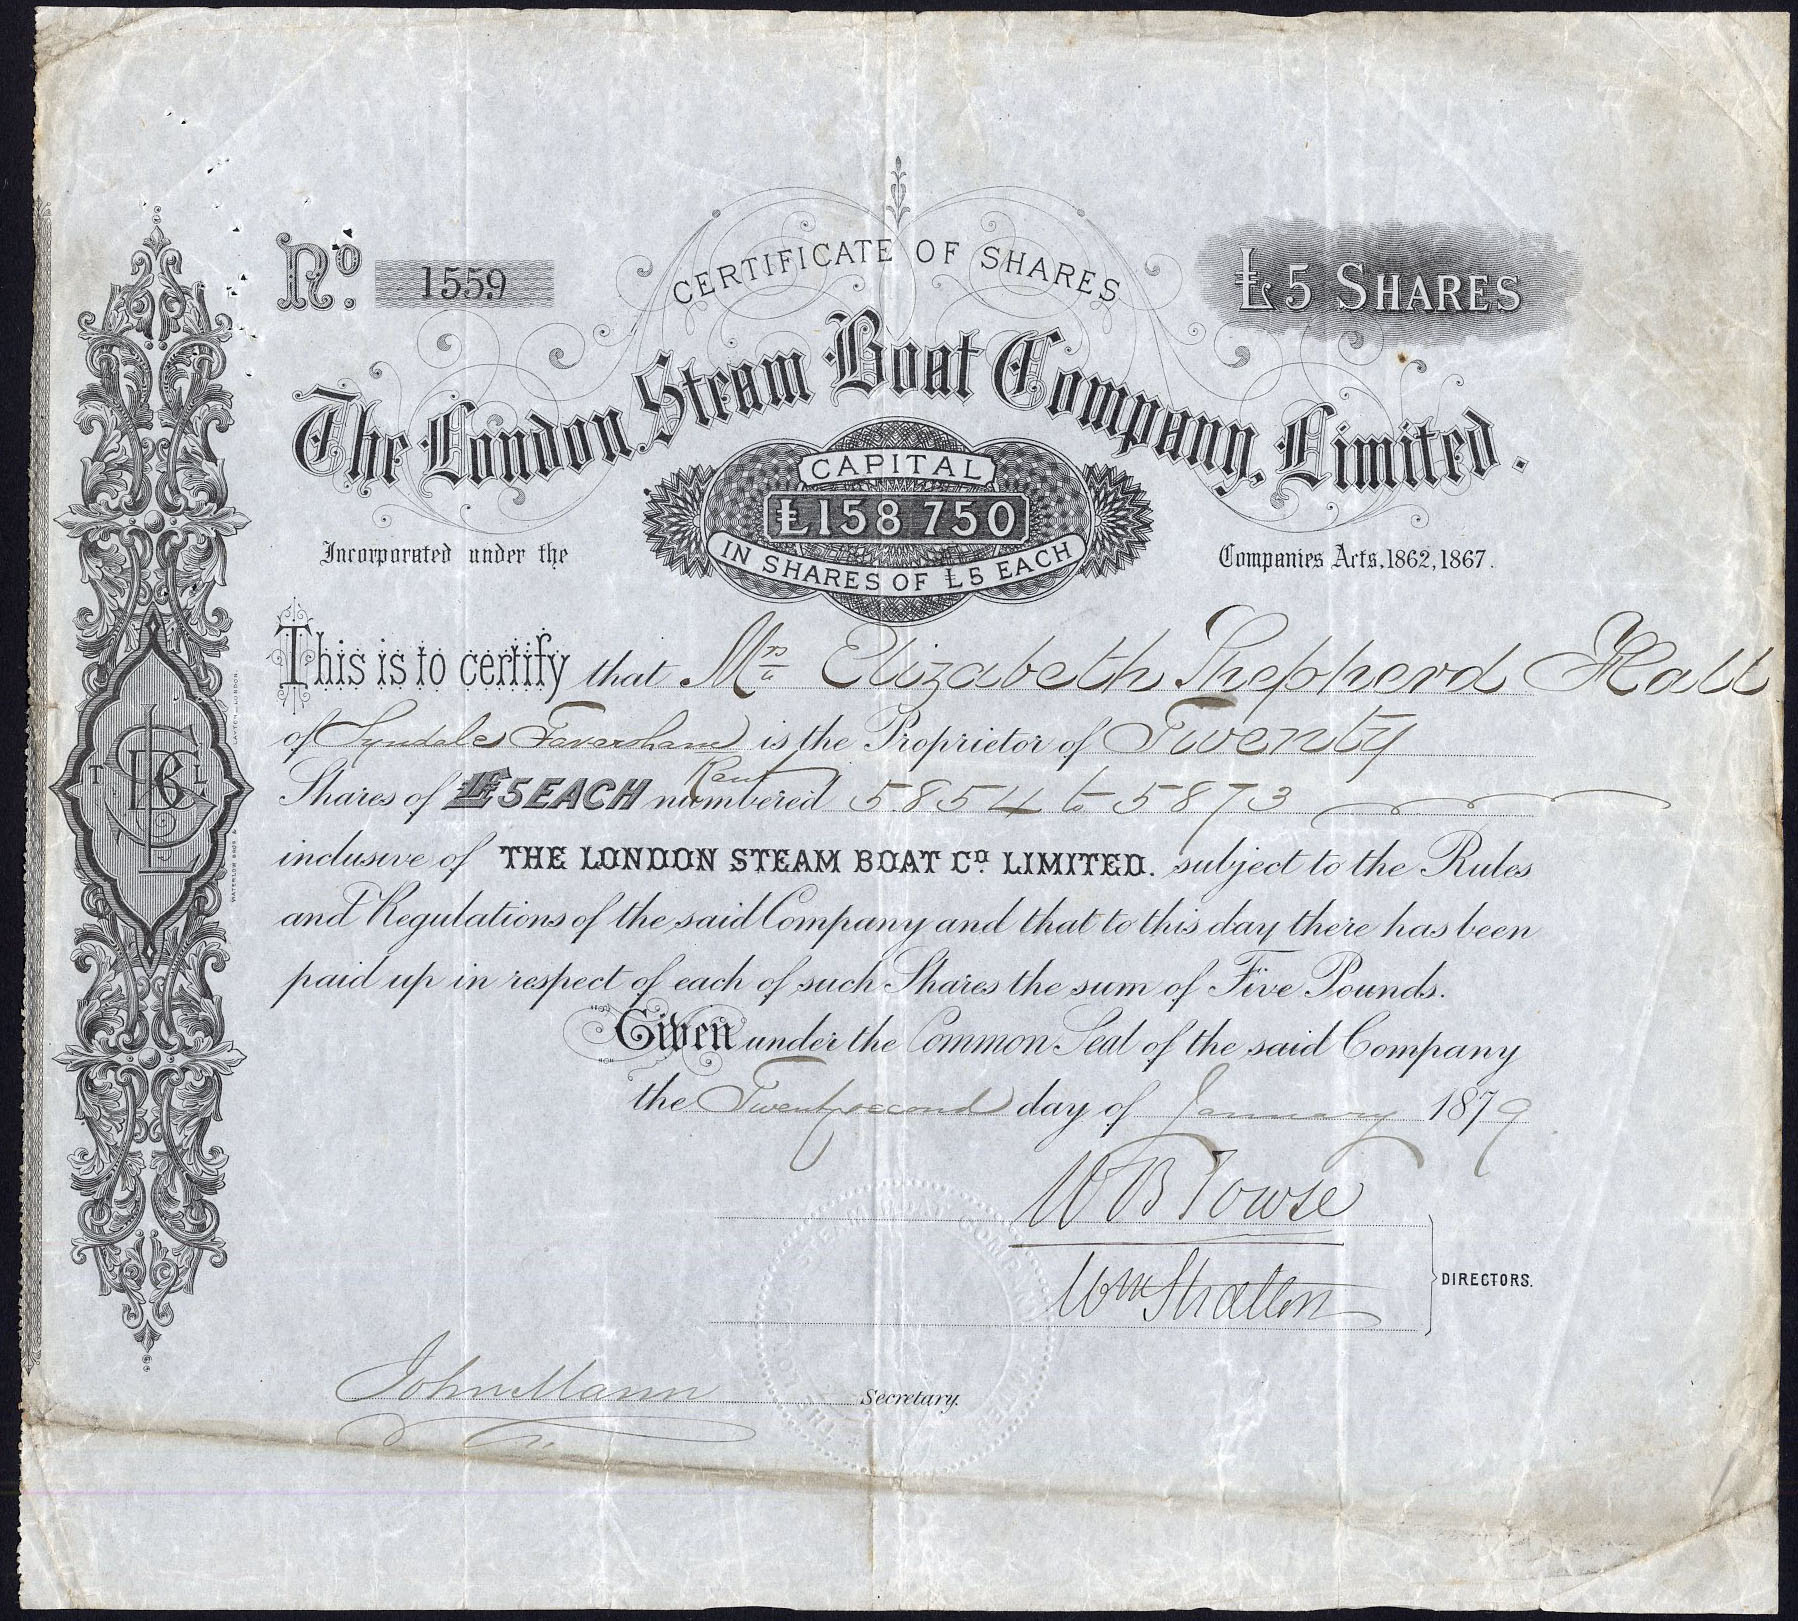 No. 1559
CERTIFICATE OF SHARES
£5 SHARES
The London Steam Boat Company, Limited.
CAPITAL
£158 750
IN SHARES OF £5 EACH
Incorporated under the Companies Acts, 1862, 1867.
This is to certify that Mrs Elizabeth Shepherd Hall
of Syndale Faversham is the Proprietor of Twenty
Kent
Shares of £5 EACH numbered 5854 to 5873
inclusive of THE LONDON STEAM BOAT Co LIMITED. subject to the Rules
and Regulations of the said Company and that to this day there has been
paid up in respect of each of such Shares the sum of Five Pounds.
Given under the Common Seal of the said Company
the Twenty second day of January 1879
W B Towse
Wm Stratton
DIRECTORS.
John Mann Secretary.
T L S B C L
WATERLOW BROS & LAYTON, LONDON.